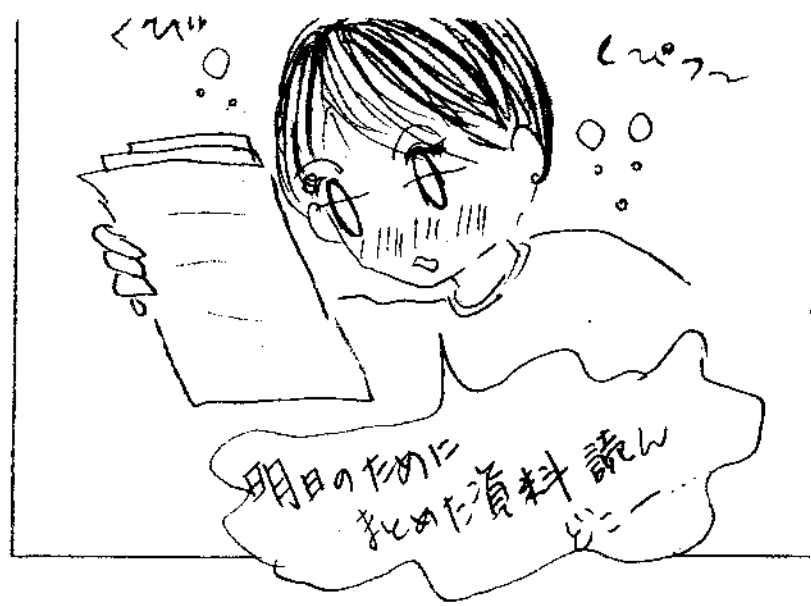 ぐび
ぐぴっ〜
明日のために
まとめた資料 読ん
どこー……